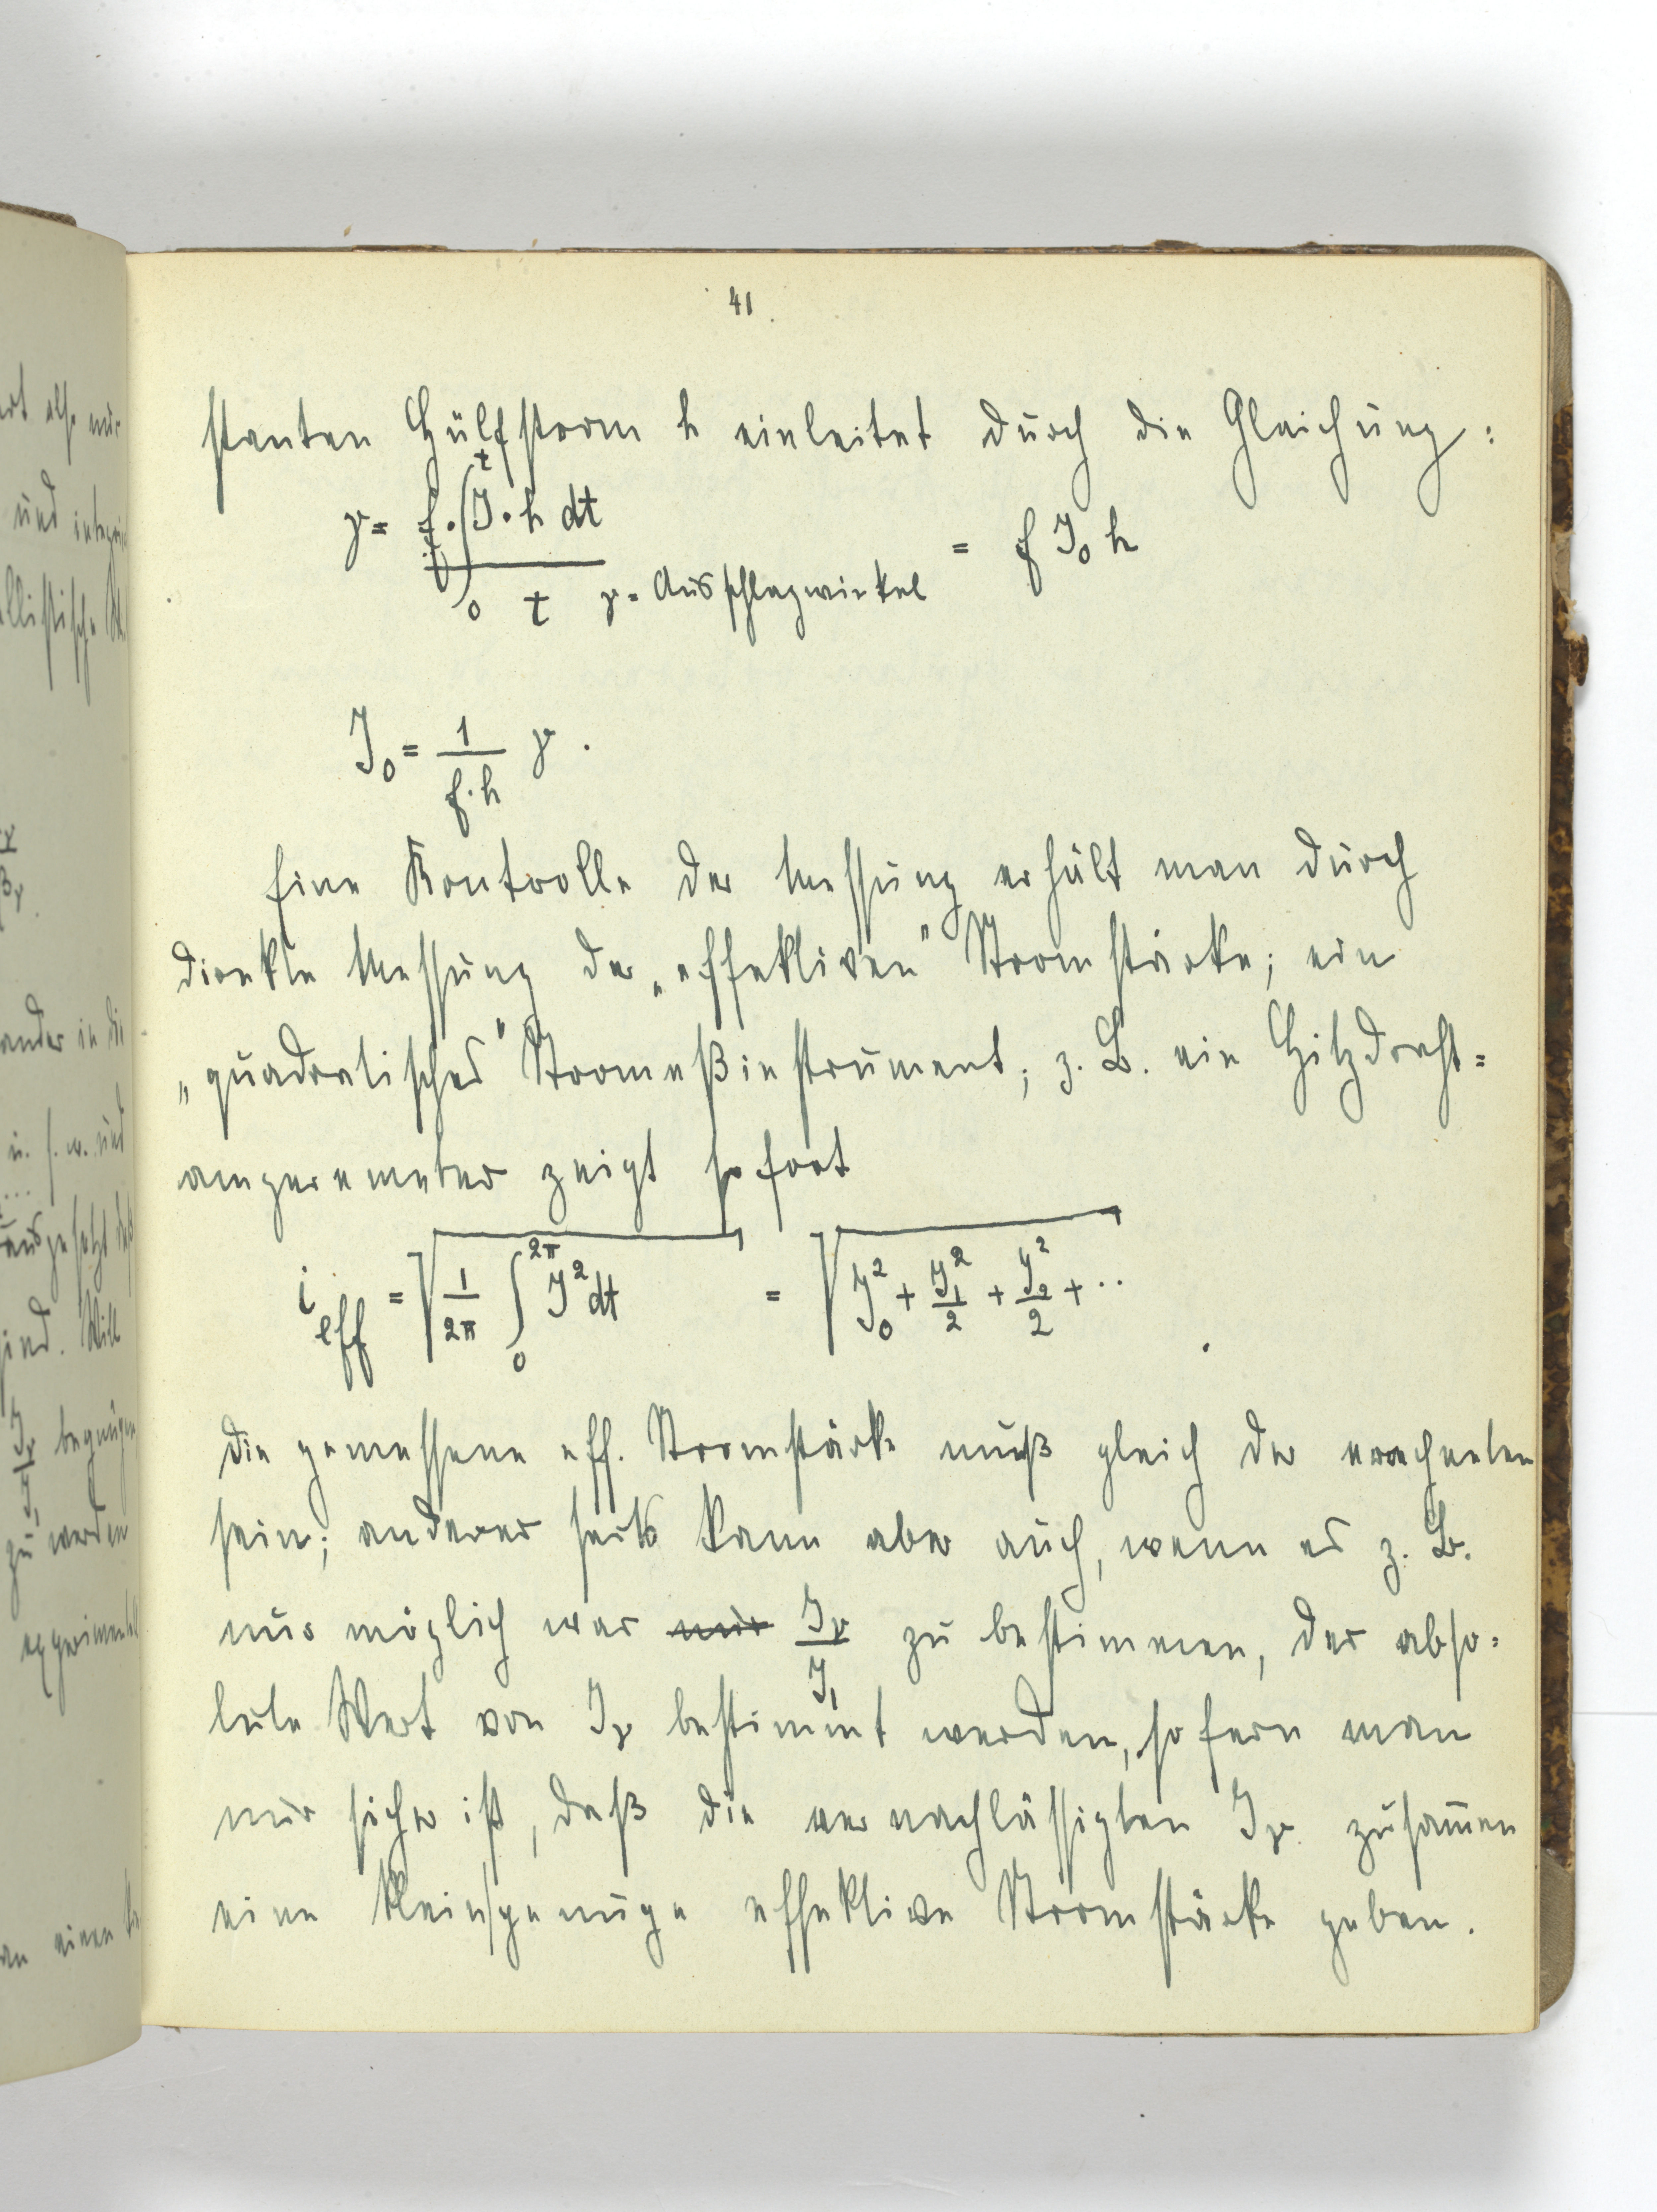 41.
stanten Hülfsstrom h einleitet durch die Gleichung:
γ = f · ∫₀ᵗ J · h dt / t = f J₀ h
γ = Ausschlagwinkel
J₀ = 1/(f·h) γ.
Eine Kontrolle der Messung erhält man durch
direkte Messung der „effektiven" Stromstärke; ein
„quadratisches" Strommeßinstrument, z. B. ein Hitzdraht=
amperemeter zeigt sofort
i_eff = √(1/2π ∫₀^2π J² dt) = √(J₀² + J₁²/2 + J₂²/2 + ..
Die gemessene eff. Stromstärke muß gleich der errechneten
sein; anderer seits kann aber auch, wenn es z. B.
nur möglich war nur Jν/J₁ zu bestimmen, der abso=
lute Wert von Jν bestimmt werden, sofern man
nur sicher ist, daß die vernachlässigten Jν zusammen
eine klein genuge effektive Stromstärke geben.